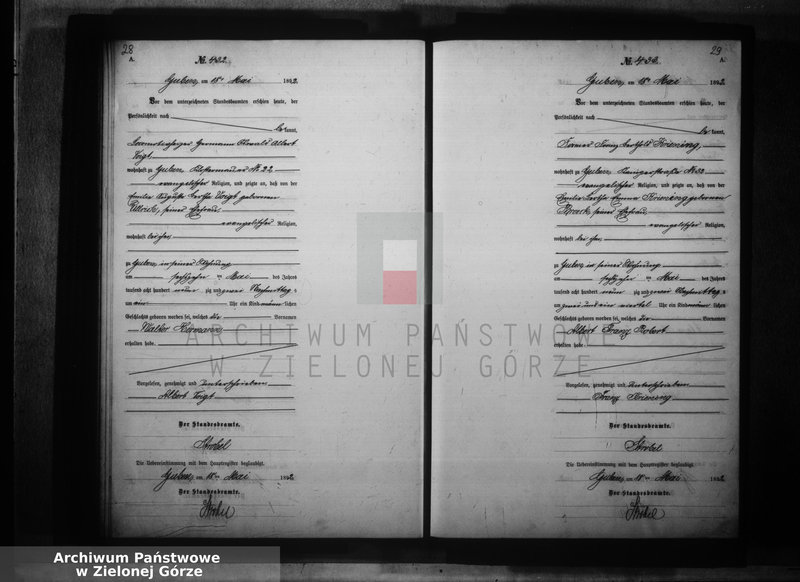 28
A.
№ 432.
Guben, am 18ten Mai 1892.
Vor dem unterzeichneten Standesbeamten erschien heute, der
Persönlichkeit nach
bekannt,
Hermann Oswald Albert
Voigt
wohnhaft zu Guben, № 22,
evangelischer Religion, und zeigte an, daß von der
Auguste Bertha Voigt geborenen
Ullrich, seiner Ehefrau
evangelischer Religion,
wohnhaft bei ihm
zu Guben, in seiner Wohnung
am sechszehnten Mai des Jahres
tausend acht hundert neunzig und zwei Nachmittags
um ein Uhr ein Kind männlichen
Geschlechts geboren worden sei, welches die Vornamen
Walter Hermann
erhalten habe.
Vorgelesen, genehmigt und unterschrieben
Albert Voigt
Der Standesbeamte.
Strobel
Die Uebereinstimmung mit dem Hauptregister beglaubigt.
Guben, am 18ten Mai 1892.
Der Standesbeamte.
Strobel
29
A.
№ 433.
Guben, am 18ten Mai 1892.
Vor dem unterzeichneten Standesbeamten erschien heute, der
Persönlichkeit nach
bekannt,
Franz Berthold Briening,
wohnhaft zu Guben,
evangelischer Religion, und zeigte an, daß von der
Emma Briening geborenen
seiner Ehefrau
evangelischer Religion,
wohnhaft bei ihm
zu Guben, in seiner Wohnung
am sechszehnten Mai des Jahres
tausend acht hundert neunzig und zwei Nachmittags
um zwei und ein viertel Uhr ein Kind männlichen
Geschlechts geboren worden sei, welches die Vornamen
Albert Franz Robert
erhalten habe.
Vorgelesen, genehmigt und unterschrieben
Franz Briening
Der Standesbeamte.
Strobel
Die Uebereinstimmung mit dem Hauptregister beglaubigt.
Guben, am 18ten Mai 1892.
Der Standesbeamte.
Strobel
ARCHIWUM PAŃSTWOWE
W ZIELONEJ GÓRZE
Archiwum Państwowe
w Zielonej Górze